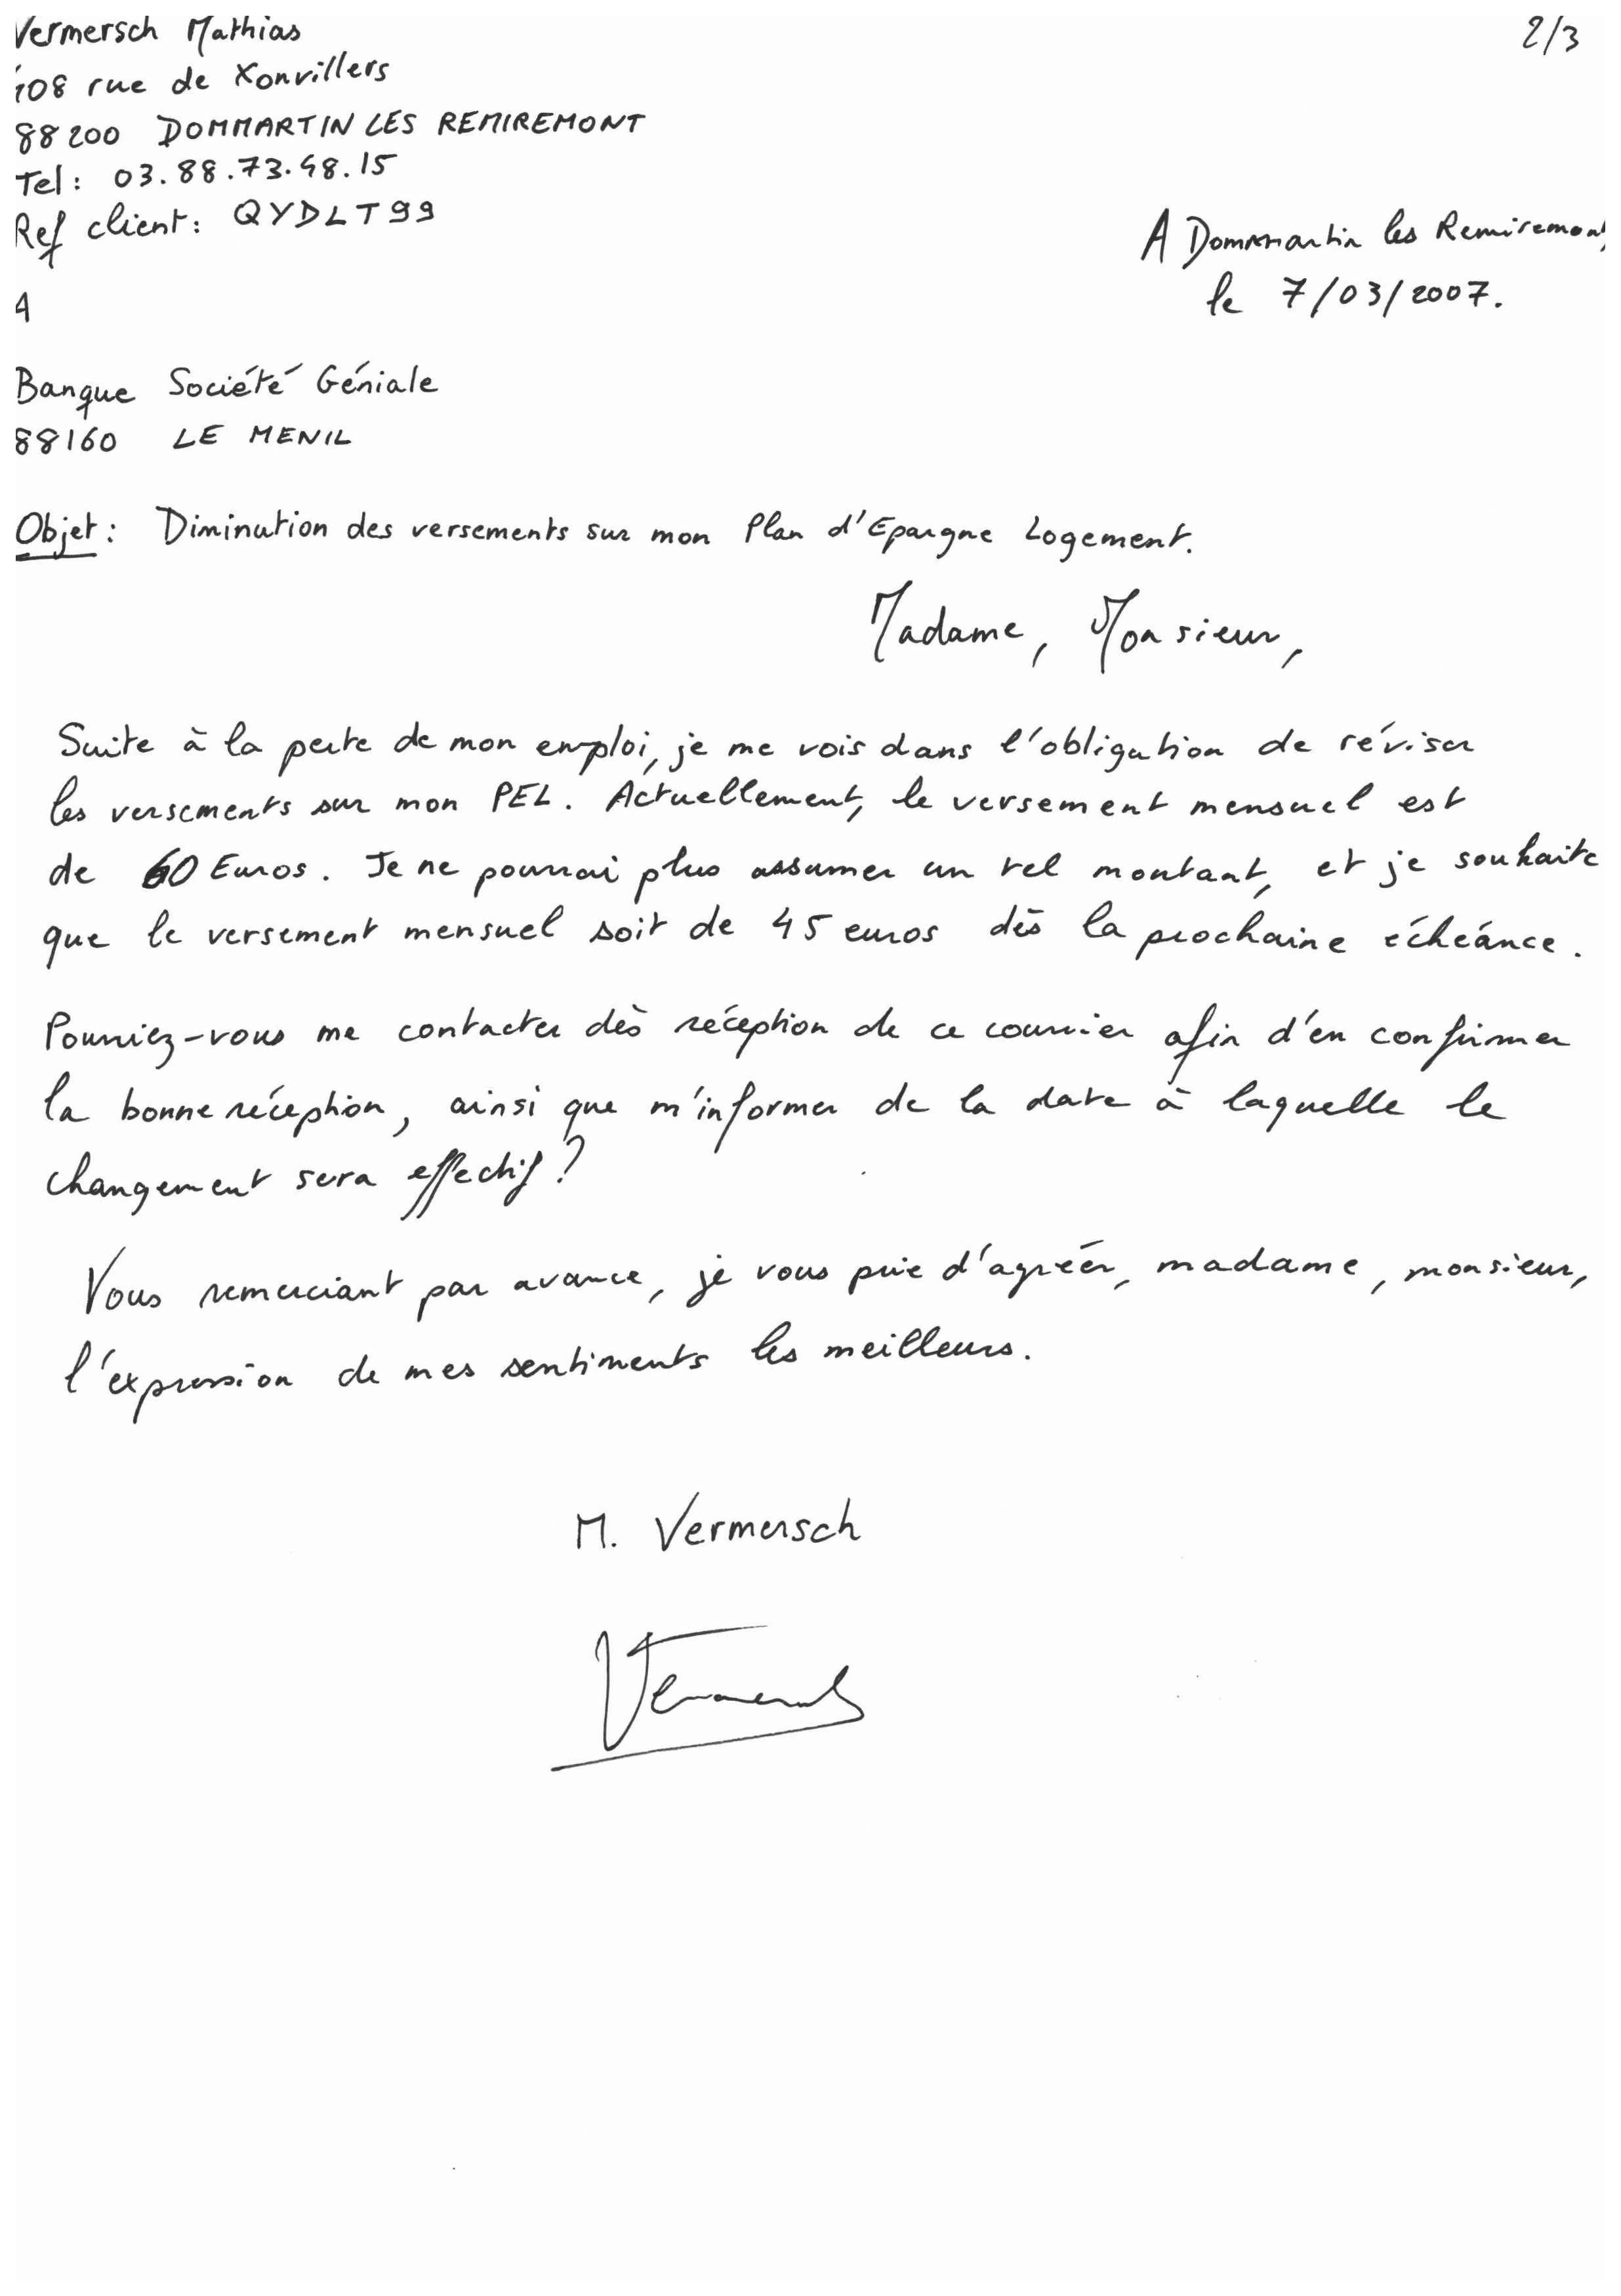 Vermersch Mathias
2/3
108 rue de Xonvillers
88200 DOMMARTIN LES REMIREMONT
Tel : 03.88.73.48.15
Ref client : QYDLT99
A Dommartin les Remiremont,
le 7/03/2007.
A
Banque Société Géniale
88160 LE MENIL
Objet : Diminution des versements sur mon Plan d'Epargne Logement.
Madame, Monsieur,
Suite à la perte de mon emploi, je me vois dans l'obligation de réviser
les versements sur mon PEL. Actuellement, le versement mensuel est
de 60 Euros. Je ne pourrai plus assumer un tel montant, et je souhaite
que le versement mensuel soit de 45 euros dès la prochaine échéance.
Pourriez-vous me contacter dès réception de ce courrier afin d'en confirmer
la bonne réception, ainsi que m'informer de la date à laquelle le
changement sera effectif ?
Vous remerciant par avance, je vous prie d'agréer, madame, monsieur,
l'expression de mes sentiments les meilleurs.
M. Vermersch
Vermersch